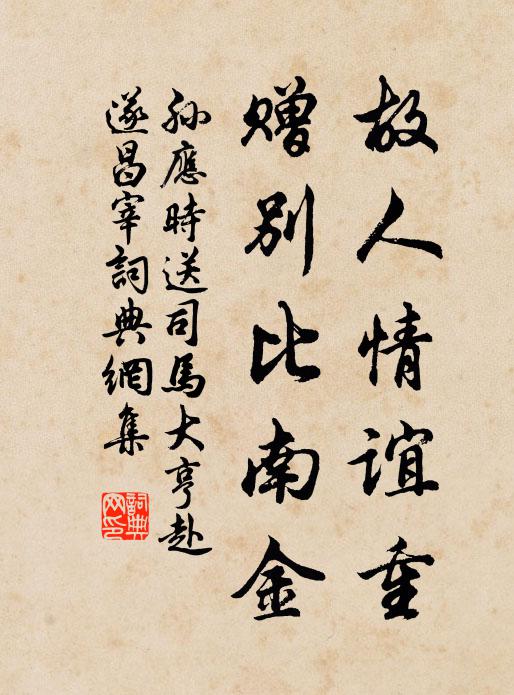 故人情誼重
贈別比南金
孫應時送司馬大亨赴
遂昌宰詞典網集
詞典
网印